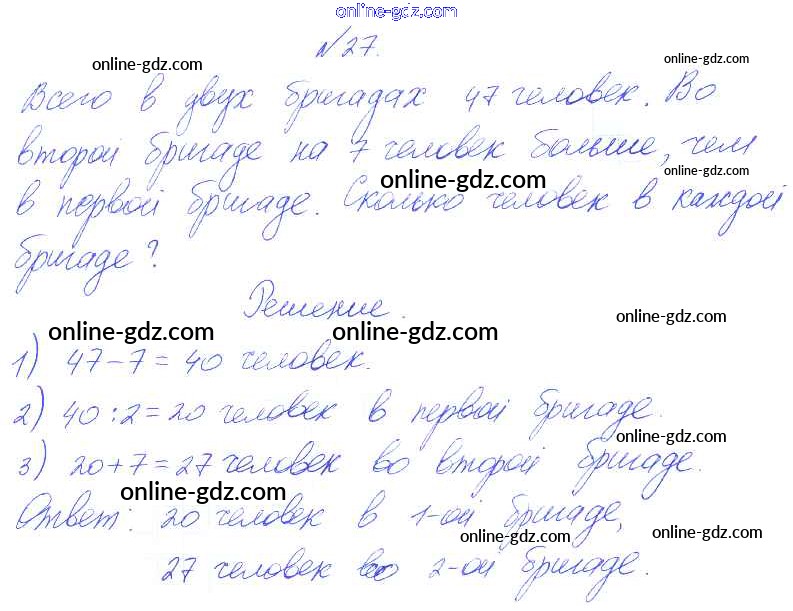 online-gdz.com
№27.
online-gdz.com
online-gdz.com
Всего в двух бригадах 47 человек. Во
второй бригаде на 7 человек больше, чем
online-gdz.com
online-gdz.com
в первой бригаде. Сколько человек в каждой
бригаде?
Решение.
online-gdz.com
online-gdz.com
online-gdz.com
1) 47-7=40 человек.
2) 40:2=20 человек в первой бригаде.
online-gdz.com
3) 20+7=27 человек во второй бригаде.
online-gdz.com
Ответ: 20 человек в 1-ой бригаде,
online-gdz.com
online-gdz.com
27 человек во 2-ой бригаде.